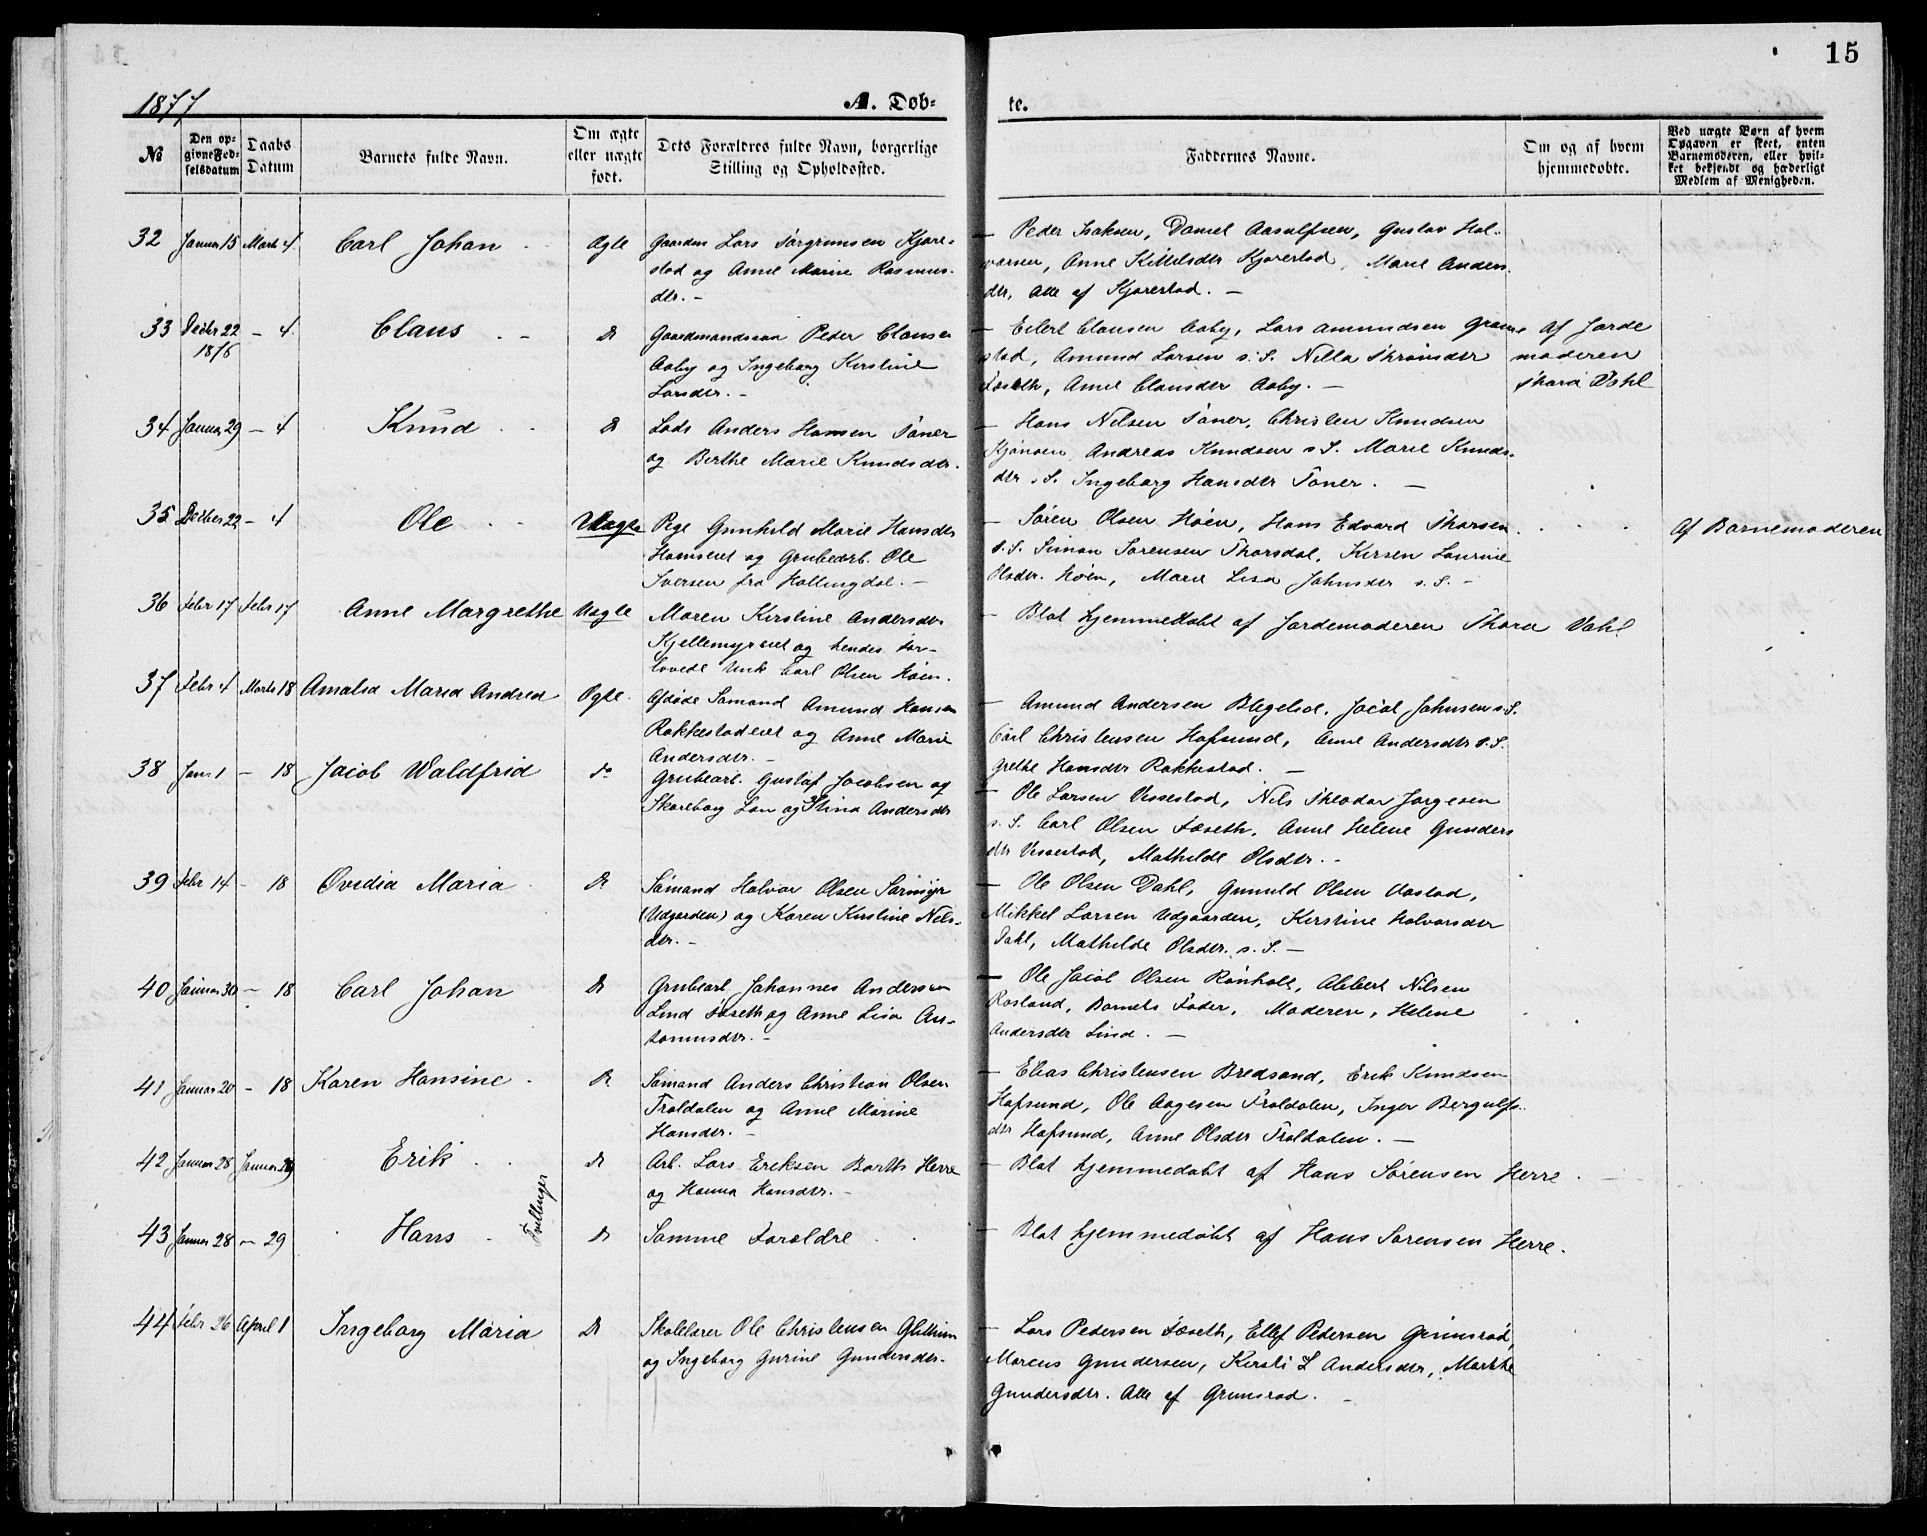 15
1877
A. Døb-
te.
№
Den op-
givne Fød-
selsdatum
Daabs
Datum
Barnets fulde Navn.
Om ægte
eller uægte
født.
Dets Forældres fulde Navn, borgerlige
Stilling og Opholdssted.
Faddernes Navne.
Om og af hvem
hjemmedøbte.
Ved uægte Børn af hvem
Opgaven er skeet, enten
Barnemoderen, eller hvil-
ket bekjendt og hæderligt
Medlem af Menigheden.
32 Januar 15 Marts 4. Carl Johan Ægte
Gaardm Lars Torgrimsen Kjøre-
stad og Anne Marie Rasmus-
dtr.
Peder Isaksen, Daniel Aasulfsen, Gustav Hal-
varsen, Anne Kittilsdtr Kjørestad, Marie Anders
dtr, Alle af Kjørestad.
33 Decbr 22 1876 – 4. Claus Do
Gaardmandssøn Peder Clausen
Aaby og Ingeborg Kirstine
Larsdtr.
Eilert Clausen Aaby, Lars Amundsen
stad, Amund Larsen s.S. Nella
Foseth, Anne Clausdtr Aaby.
Af Jorde
moderen
Thora Dahl
34 Januar 29 – 4 Knud Do
Lods Anders Hansen Toner
og Berthe Marie Knudsdtr.
Hans Nilsen Toner, Christen Knudsen
Andreas Knudsen s.S. Marie Knuds-
dtr s.S. Ingeborg Hansdtr Toner.
35 Decbr 22 – 4 Ole Uægte
Pige Gunhild Marie Hansdtr
og Grubearb. Ole
Iversen fra Hallingdal.
Søren Olsen Høen, Hans Edvard Thorsen
s.S. Simon Sørensen Thorsdal, Kirsten Laurine
Olsdtr. Høen, Marie Lisa Johnsdtr s.S.
Af Barnemoderen
36 Febr 17 Febr 17 Anne Margrethe Uægte
Maren Kirstine Andersdtr
Kjellemyr eiet og hendes for-
lovede Unk Carl Olsen Høen.
Blot hjemmedøbt af Jordemoderen Thora Vahl
37 Febr 4 Marts 18 Amalia Maria Andrea Ægte.
Afdøde Sømand Amund Hansen
Rokkestadeiet og Anne Marie
Andersdtr.
Amund Andersen Blegelsø, Jacob Johnsen s.S.
Carl Christensen Hafsund, Anne Andersdtr s.S.
Grethe Hansdtr Rokkestad.
38 Jan. 1 – 18 Jacob Waldfrid Do
Grubearb. Gustaf Jacobsen og
Skoreborg Lan og Stina Andersdtr
Ole Larsen Vissestad, Nils Theodor Jørgesen
s.S. Carl Olsen Foseth, Anne Helene Gunders
dtr Vissestad, Mathilde Olsdtr.
39 Febr 14 – 18 Ovedia Maria Do
Sømand Halvor Olsen Sørmyr
(Udgarden) og Karen Kirstine Nels-
dtr.
Ole Olsen Dahl, Gunuld Olsen Aastad,
Mikkel Larsen Udgaarden, Kirstine Halvorsdtr
Dahl, Mathilde Olsdtr. s.S.
40 Januar 30 – 18 Carl Johan Do
Grubearb. Johannes Andersen
Lind Foseth og Anne Lisa An-
tonnusdtr.
Ole Jacob Olsen Rønholt, Albert Nilsen
Rosland, Barnets Fader, Moderen, Helene
Andersdtr Lind.
41 Januar 20 – 18 Karen Hansine Do
Sømand Anders Christian Olsen
Troldalen og Anne Marine
Hansdtr.
Elias Christensen Bredsand, Erik Knudsen
Hafsund, Ole Aagesen Troldalen, Inger Bergulfs-
dtr Hafsund, Anne Olsdtr Troldalen.
42 Januar 28 Januar 29 Erik Do
Arb. Lars Eriksen Barth Herre
og Hanna Hansdtr.
Blot hjemmedøbt af Hans Sørensen Herre
Tvillinger
43 Januar 28 – 29 Hans Do
Samme Forældre
Blot hjemmedøbt af Hans Sørensen Herre.
44 Febr 26 April 1 Ingeborg Maria Do
Skolelærer Ole Christensen
og Ingeborg Gurine Gundersdtr.
Lars Pedersen Foseth, Ellef Pedersen Grimsrød,
Marcus Gundersen, Kirsti L Andersdtr, Marthe
Gundersdtr. Alle af Grimsrød.